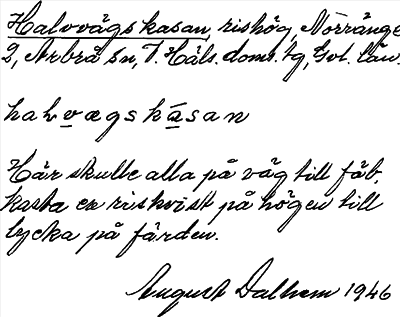 Halvvägskasan, rishög, Norränge
2, Arbrå sn, V. Häls. doms. tg, Gvl. län.
halvægskasan
Här skulle alla på väg till fäb.
kasta en riskvist på högen till
lycka på färden.
August Dalhem 1946